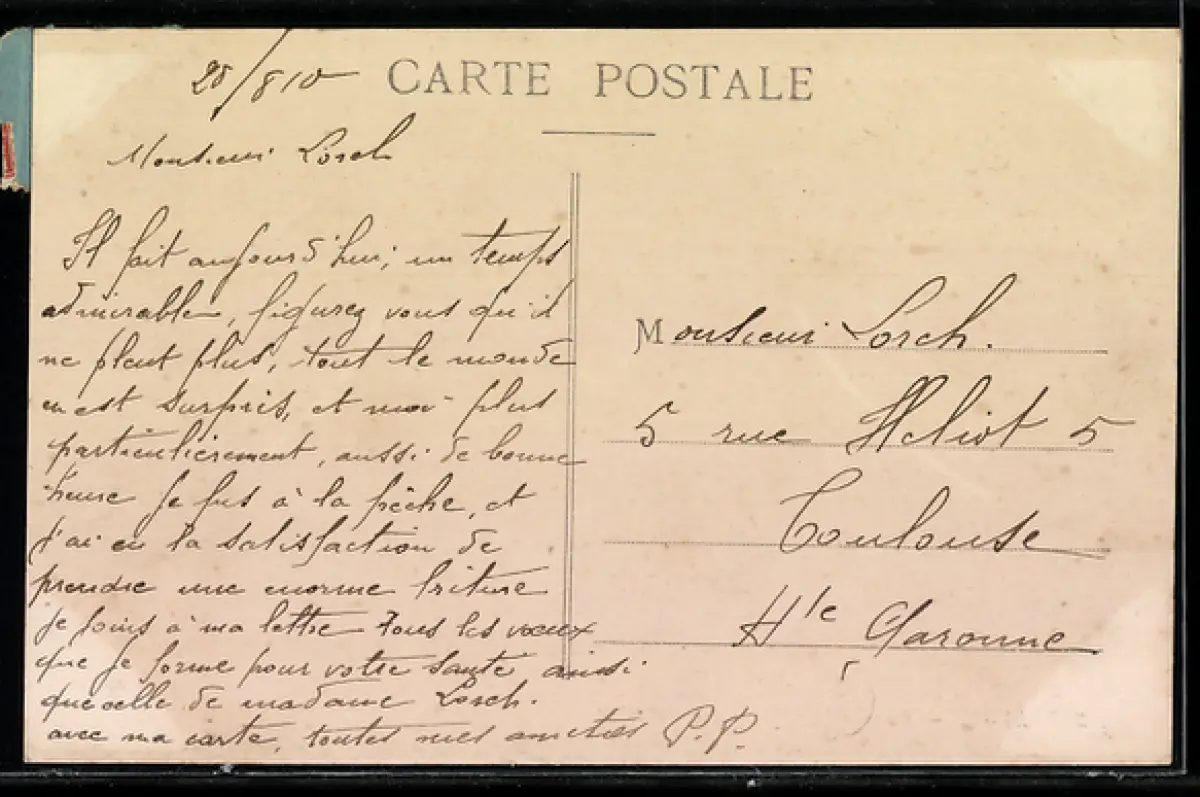 25/8 10
CARTE POSTALE
Monsieur Lorch
Il fait aujourd'hui, un temps
admirable, figurez vous qu'il
ne pleut plus, tout le monde
en est surpris, et moi plus
particulièrement, aussi de bonne
heure je fus à la pêche, et
j'ai eu la satisfaction de
prendre une enorme friture
je joins à ma lettre tous les vœux
que je forme pour votre santé ainsi
que celle de madame Lorch.
avec ma carte, toutes mes amitiés P.P.
Monsieur Lorch.
5 rue Héliot 5
Toulouse
Hte Garonne